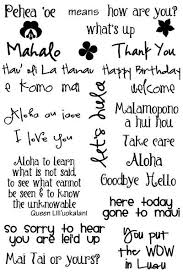 Pehea 'oe means how are you?
what's up
Mahalo Thank You
Hau'oli La Hanau Happy Birthday
e komo mai welcome
Aloha au iooe
Malamopono
a hui hou
let's hula
I love you
Take care
Aloha to learn
what is not said
to see what cannot
be seen & to know
the unknowable
Queen Lili'uokalani
Aloha
Goodbye Hello
here today
gone to maui
so sorry to hear
you are lei'd up
You put
the WOW
in Luau
Mai Tai or yours?